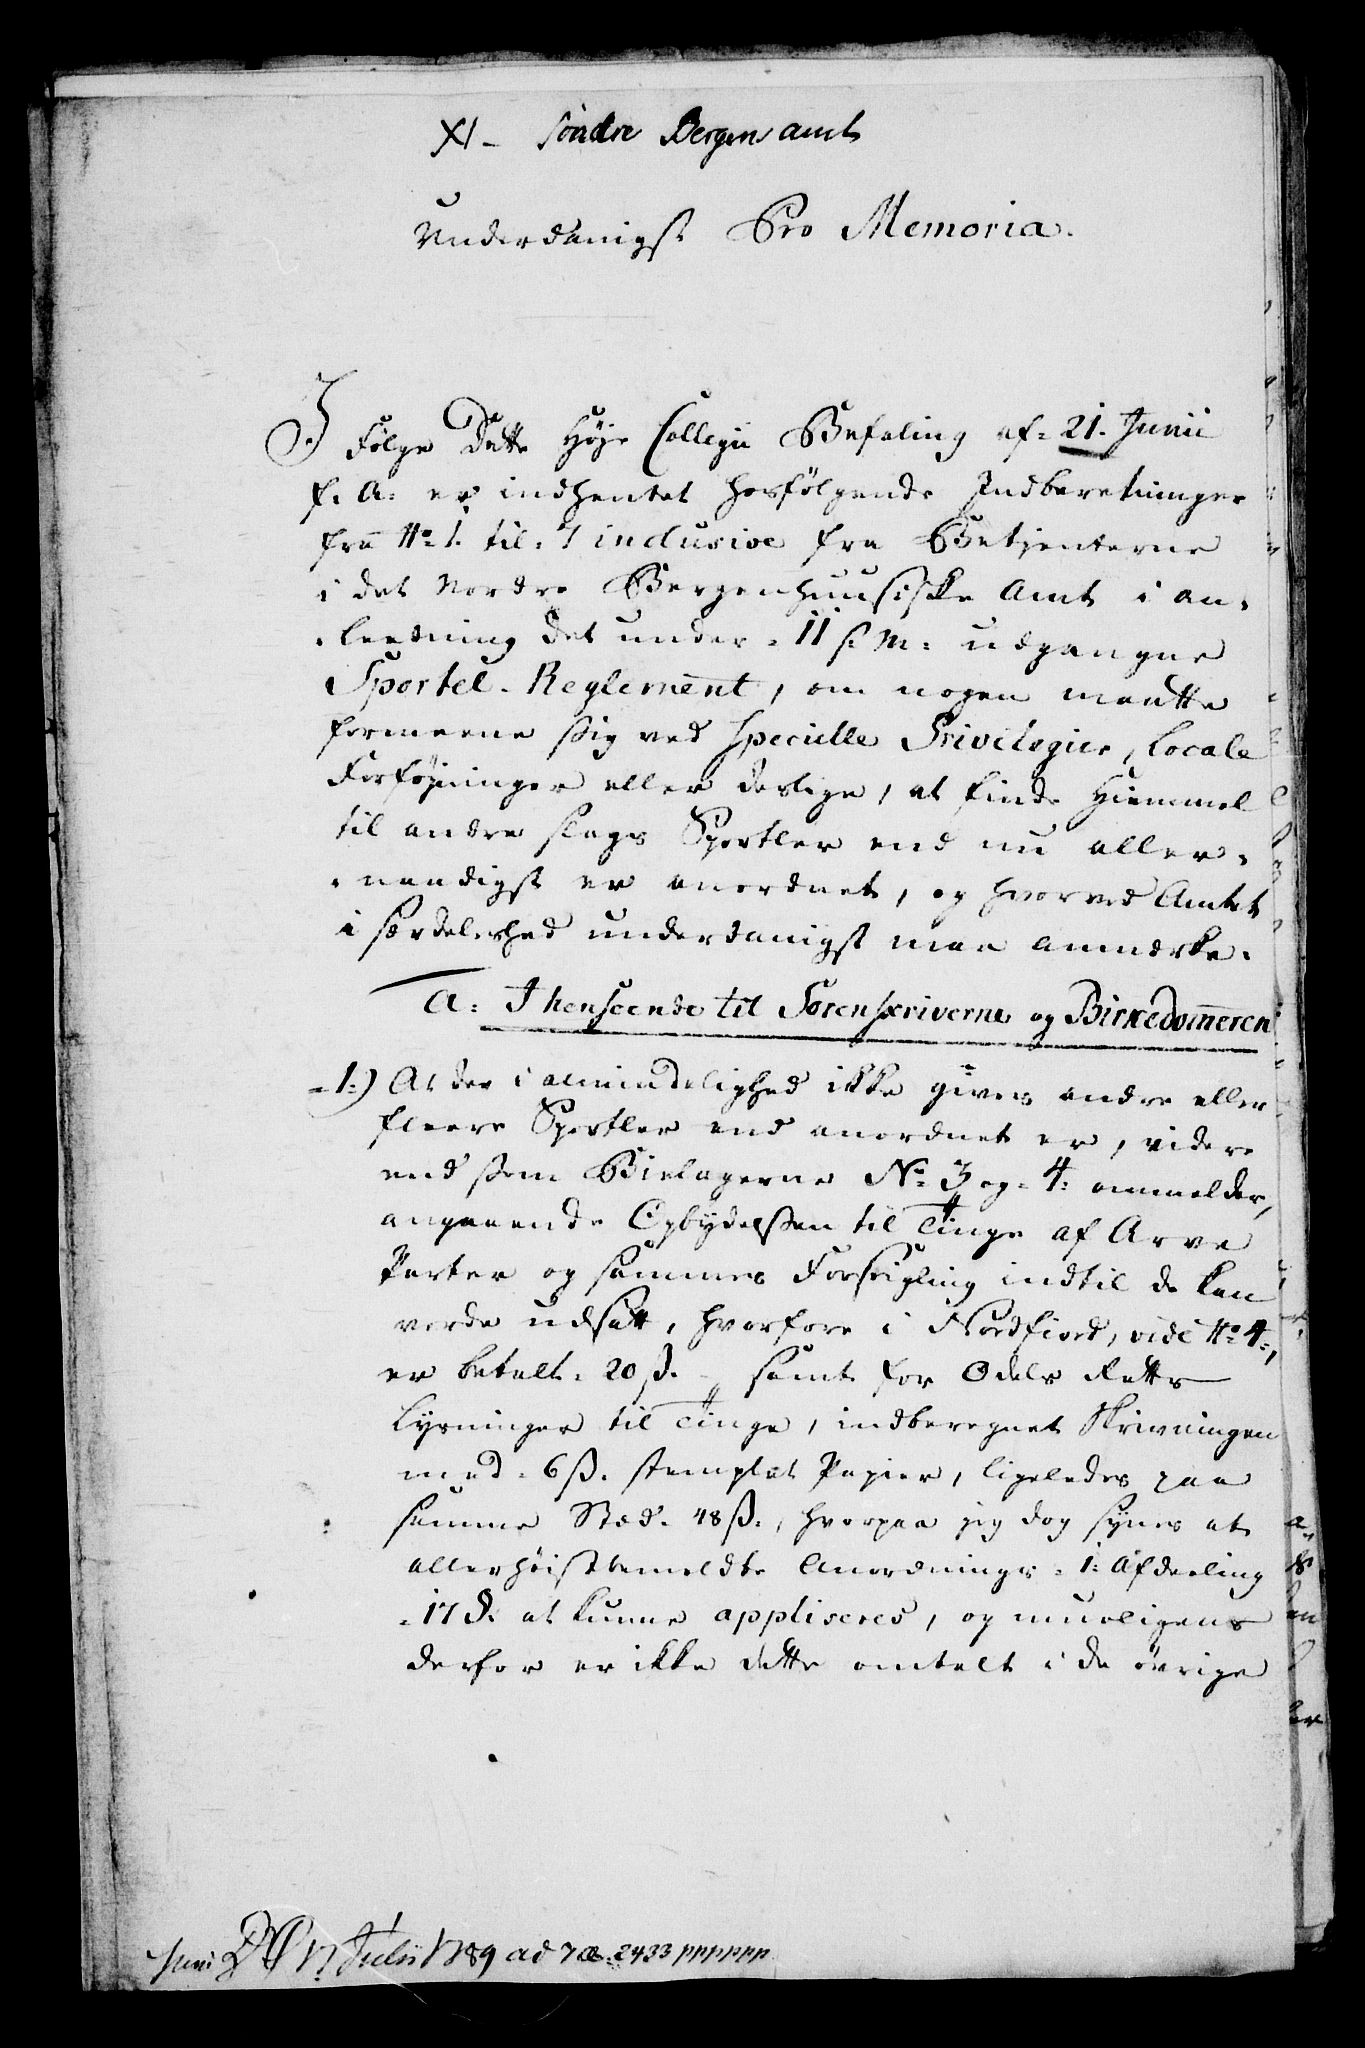 XI – söndre Bergens amt
Underdanigst Pro Memoria.
I Følge Dette Høje Collegii Befaling af 21. Junii
f. A: er indhentet hosfölgende Indberetninger
fra No 1. til 7 inclusive fra Betjenterne
i det Nordre Bergenhuusiske Amt i an-
-leedning det under 11 s: M: udgangne
Sportel-Reglement, om nogen maatte
formeene sig ved specielle Privilegier, Locale
Forføyninger eller deslige, at finde Hiemmel
til andre slags Sportler end nu aller-
-naadigst er anordnet, og hvorved Amtet
i særdeleshed underdanigst maa anmærke.
A: I henseende til Sorenskriverne og Birkedom̄eren
1:) At der i almindelighed ikke gives andre eller
fleere Sportler end anordnet er, videre
end som Bielagerne No 3 og 4: ommelder,
angaaende Opbydelsen til Tinge af Arve
Parter og sammes Forseigling indtil de kan
vorde udsatt, hvorfore i Nordfiord, vide No 4:,
er betalt 20 ß. – samt for Odels Retts
Lysninger til Tinge, indberegnet Skrivningen
med 6 ß. stemplet Papier, ligeledes paa
samme Stæd 48 ß., hvorpaa jeg dog synes at
allerhøistbemeldte Anordnings 1: Afdeeling
17 §. at kunne appliseres, og mueligens
derfor er ikke dette omtalt i de övrige
17 Julii 1789 ad 2433 pppppp